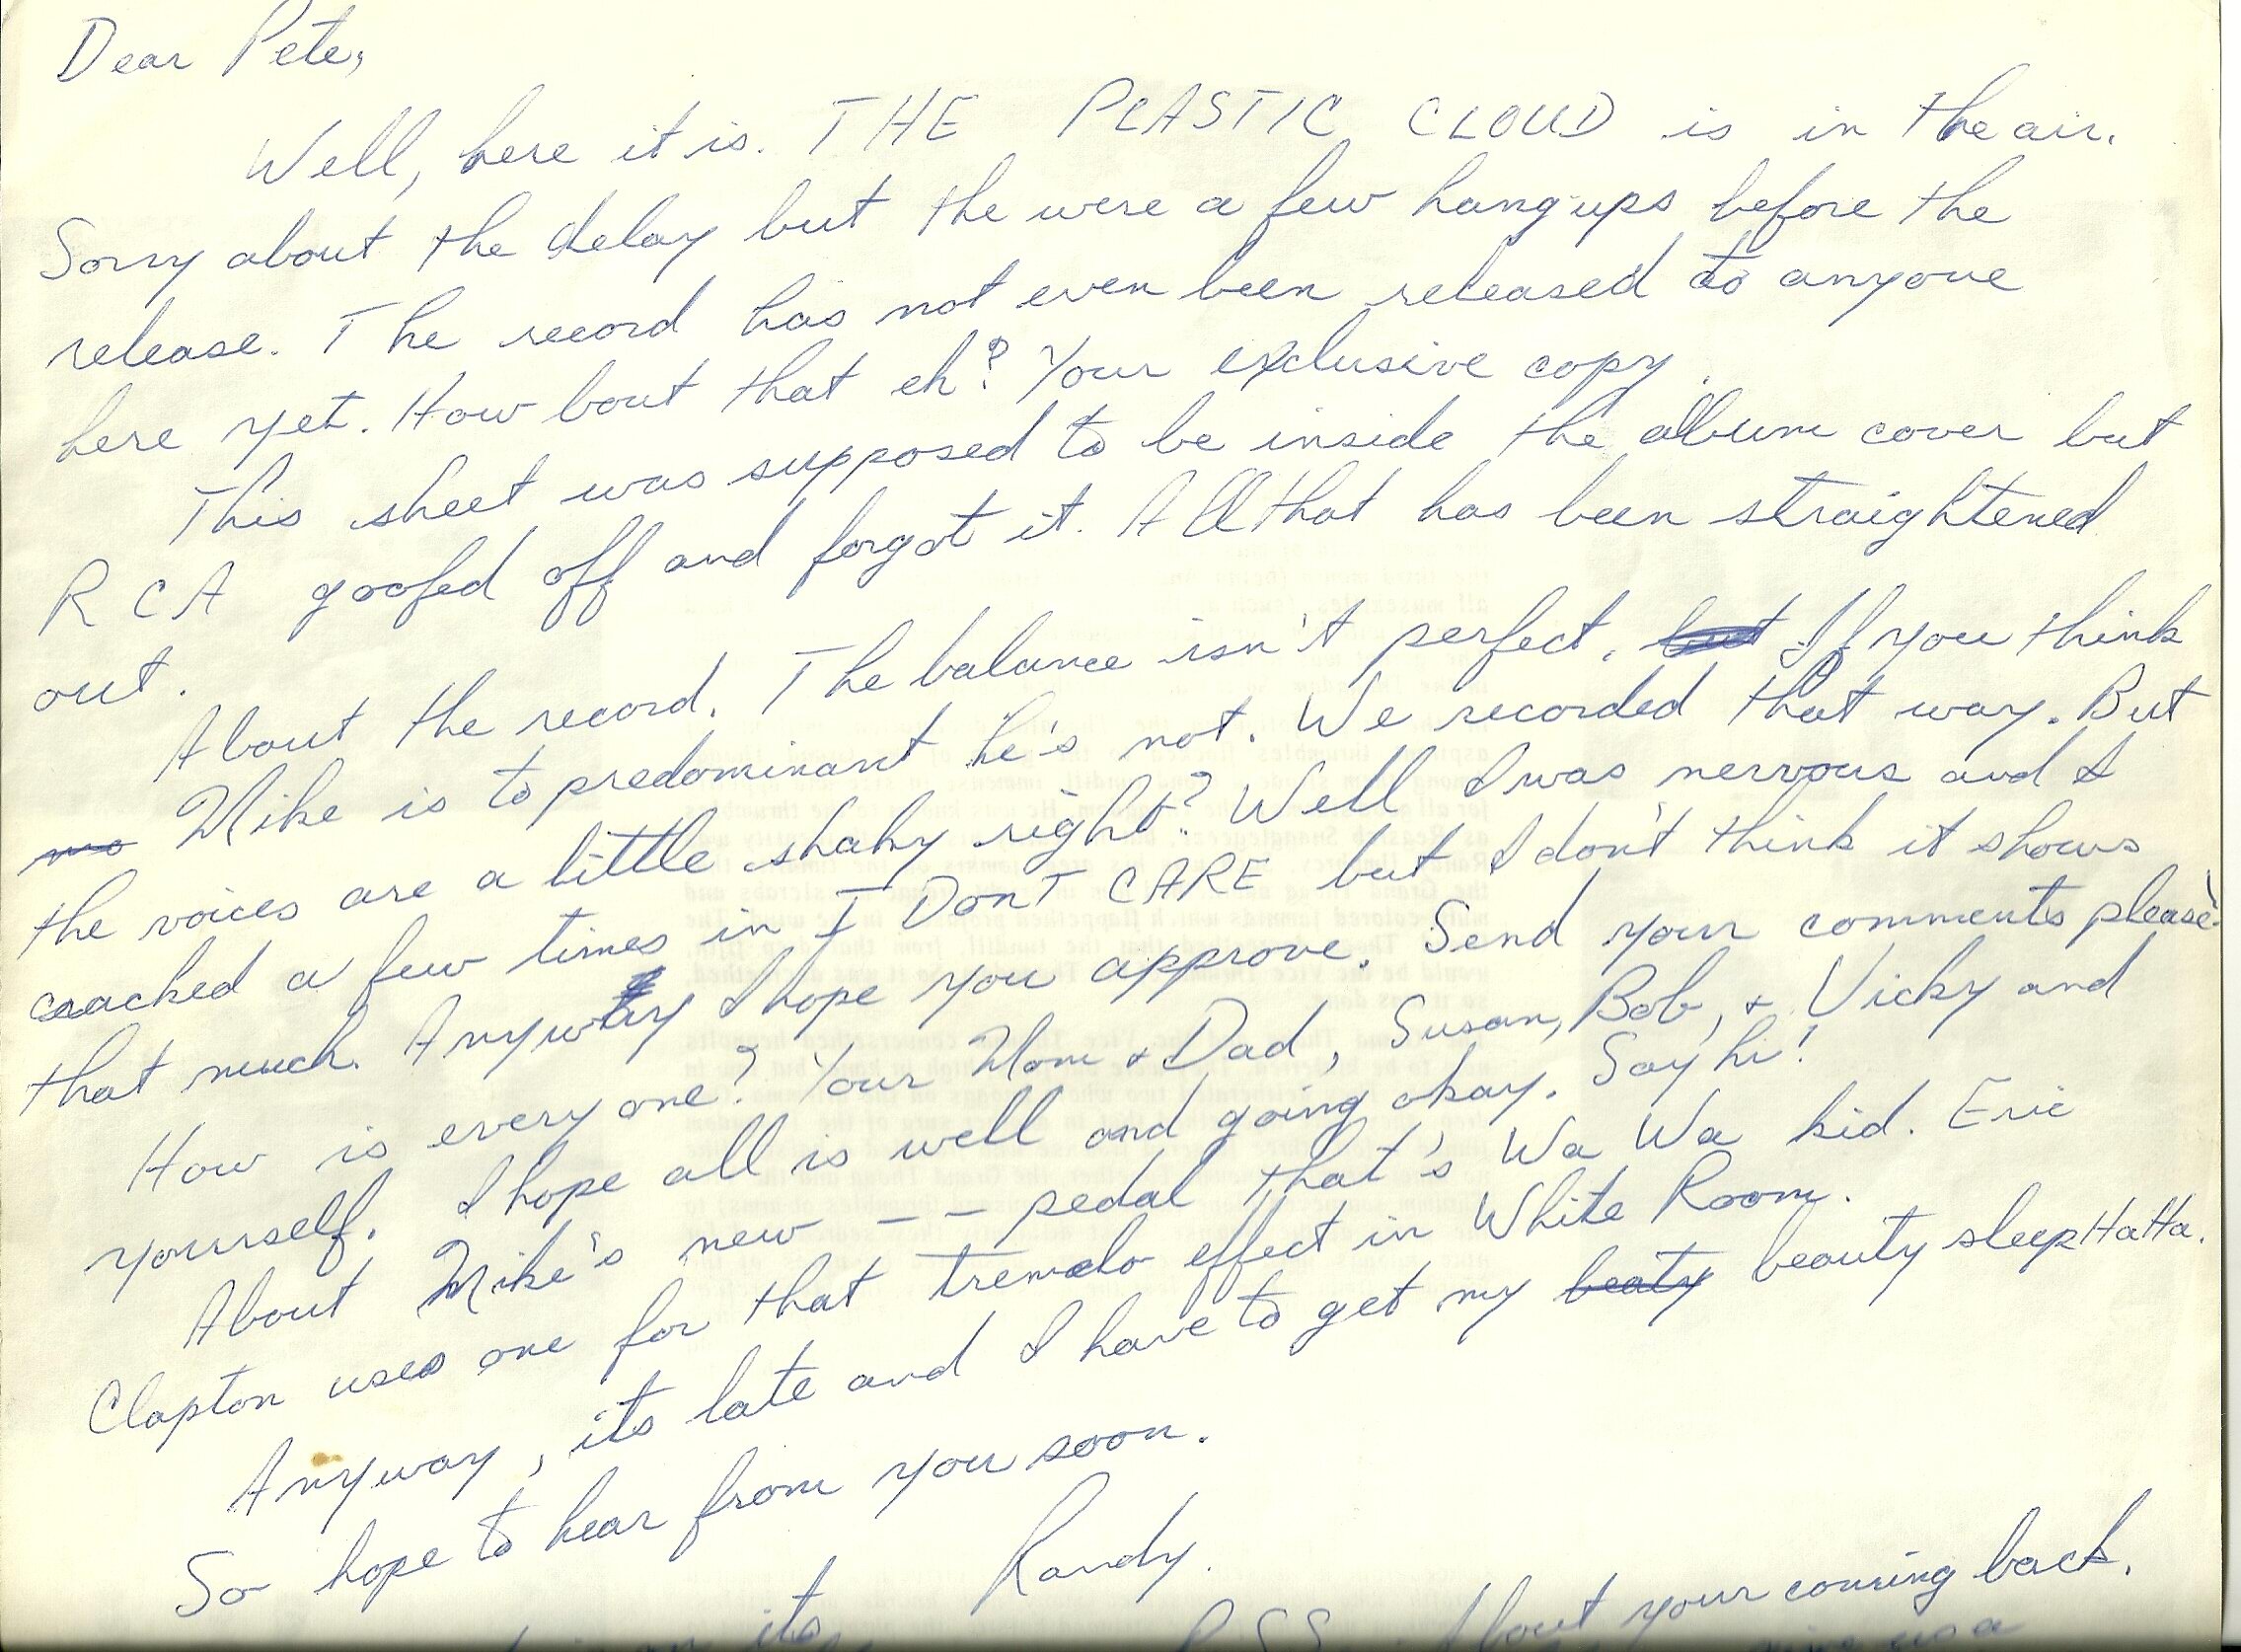 Dear Pete,
Well, here it is. THE PLASTIC CLOUD is in the air.
Sorry about the delay but the were a few hang-ups before the
release. The record has not even been released to anyone
here yet. How bout that eh? Your exclusive copy.
This sheet was supposed to be inside the album cover but
RCA goofed off and forgot it. All that has been straightened
out.
About the record. The balance isn't perfect. but If you think
Mike is to predominant he's not. We recorded that way. But
the voices are a little shaky right? Well I was nervous and I
cracked a few times in I DONT CARE but I don't think it shows
that much. Anyway I hope you approve. Send your comments please.
How is every one? Your Mom & Dad, Susan, Bob, & Vicky and
yourself. I hope all is well and going okay. Say hi!
About Mike's new – – pedal that's Wa Wa kid. Eric
Clapton uses one for that tremelo effect in White Room.
Anyway, its late and I have to get my beaty beauty sleep HaHa.
So hope to hear from you soon.
Randy.
its
P.S.S. About your coming back.
give us a